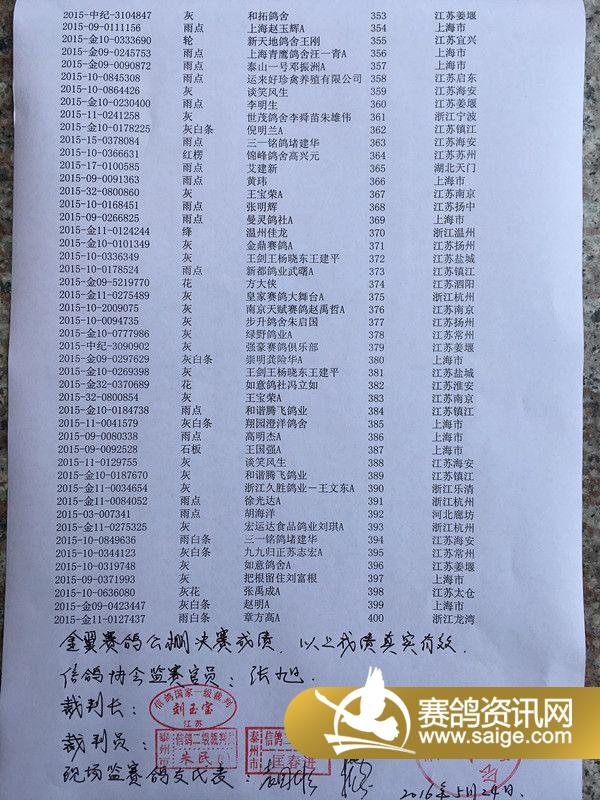 2015-中纪-3104847 灰 和拓鸽舍 353 江苏姜堰
2015-09-0111156 雨点 上海赵玉辉A 354 上海市
2015-金10-0333690 轮 新天地鸽舍王刚 355 江苏宜兴
2015-金09-0245753 雨点 上海青鹰鸽舍汪一青A 356 上海市
2015-金09-0090872 雨点 泰山一号邓振洲A 357 上海市
2015-10-0845308 雨点 运来好珍禽养殖有限公司 358 江苏启东
2015-10-0864426 灰 谈笑风生 359 江苏海安
2015-金10-0230400 雨点 李明生 360 江苏姜堰
2015-11-0241258 灰 世茂鸽舍李舜苗朱雄伟 361 浙江宁波
2015-金10-0178225 灰白条 倪明兰A 362 江苏镇江
2015-15-0378084 雨点 三一铭鸽堵建华 363 江苏海安
2015-10-0366631 红楞 锦峰鸽舍高兴元 364 江苏苏州
2015-17-0100585 雨点 艾建新 365 湖北天门
2015-09-0091363 雨点 黄玮 366 上海市
2015-32-0800860 灰 王宝荣A 367 江苏南京
2015-10-0168451 雨点 张明辉 368 江苏扬中
2015-09-0266825 雨点 曼灵鸽社A 369 上海市
2015-金11-0124244 绛 温州佳龙 370 浙江温州
2015-金10-0101349 灰 金鼎赛鸽A 371 江苏扬州
2015-10-0336349 灰 王剑王杨晓东王建平 372 江苏盐城
2015-10-0178524 雨点 新都鸽业武曙A 373 江苏镇江
2015-金09-5219770 花 方大侠 374 江苏泗阳
2015-金11-0275489 灰 皇家赛鸽大舞台A 375 浙江杭州
2015-10-2009075 灰 南京天赋赛鸽赵禹哲A 376 江苏南京
2015-10-0094735 灰 步升鸽舍朱启国 377 江苏扬州
2015-金10-0777986 灰 绿野鸽业A 378 江苏常州
2015-中纪-3090902 灰 强豪赛鸽俱乐部 379 江苏姜堰
2015-金09-0297629 灰白条 崇明龚险华A 380 上海市
2015-金10-0269398 灰 王剑王杨晓东王建平 381 江苏盐城
2015-金32-0370689 花 如意鸽社冯立如 382 江苏淮安
2015-32-0800854 灰 王宝荣A 383 江苏南京
2015-金10-0184738 雨点 和谐腾飞鸽业 384 江苏镇江
2015-11-0041579 灰白条 翔园澄洋鸽舍 385 上海市
2015-09-0080338 雨点 高明杰A 386 上海市
2015-09-0092528 石板 王国强A 387 上海市
2015-11-0129755 灰 谈笑风生 388 江苏海安
2015-金10-0187670 灰 和谐腾飞鸽业 389 江苏镇江
2015-金11-0034654 灰 浙江久胜鸽业－王文东A 390 浙江乐清
2015-金11-0084052 雨点 徐光达A 391 浙江杭州
2015-03-007341 雨点 胡海洋 392 河北廊坊
2015-金11-0275325 灰 宏运达食品鸽业刘琪A 393 浙江杭州
2015-10-0849636 雨白条 三一铭鸽堵建华 394 江苏海安
2015-金10-0344123 灰白条 九九归正苏志宏A 395 江苏常州
2015-10-0319748 灰 如意鸽舍A 396 江苏姜堰
2015-09-0371993 灰 把根留住刘富根 397 上海市
2015-10-0636080 灰花 张禹成A 398 江苏太仓
2015-金09-0423447 灰白条 赵明A 399 上海市
2015-金11-0127437 雨白条 章方高A 400 浙江龙湾
金翼赛鸽公棚决赛成绩，以上成绩真实有效．
信鸽协会监赛官员：张旭．
裁判长：
信鸽国家一级裁判
刘玉宝
江苏
裁判员：
泰州市 信鸽二级裁判 朱民
泰州市 信鸽二级裁判 匡春进
现场监赛鸽友代表：
2016年5月24日．
赛鸽资讯网
www.saige.com